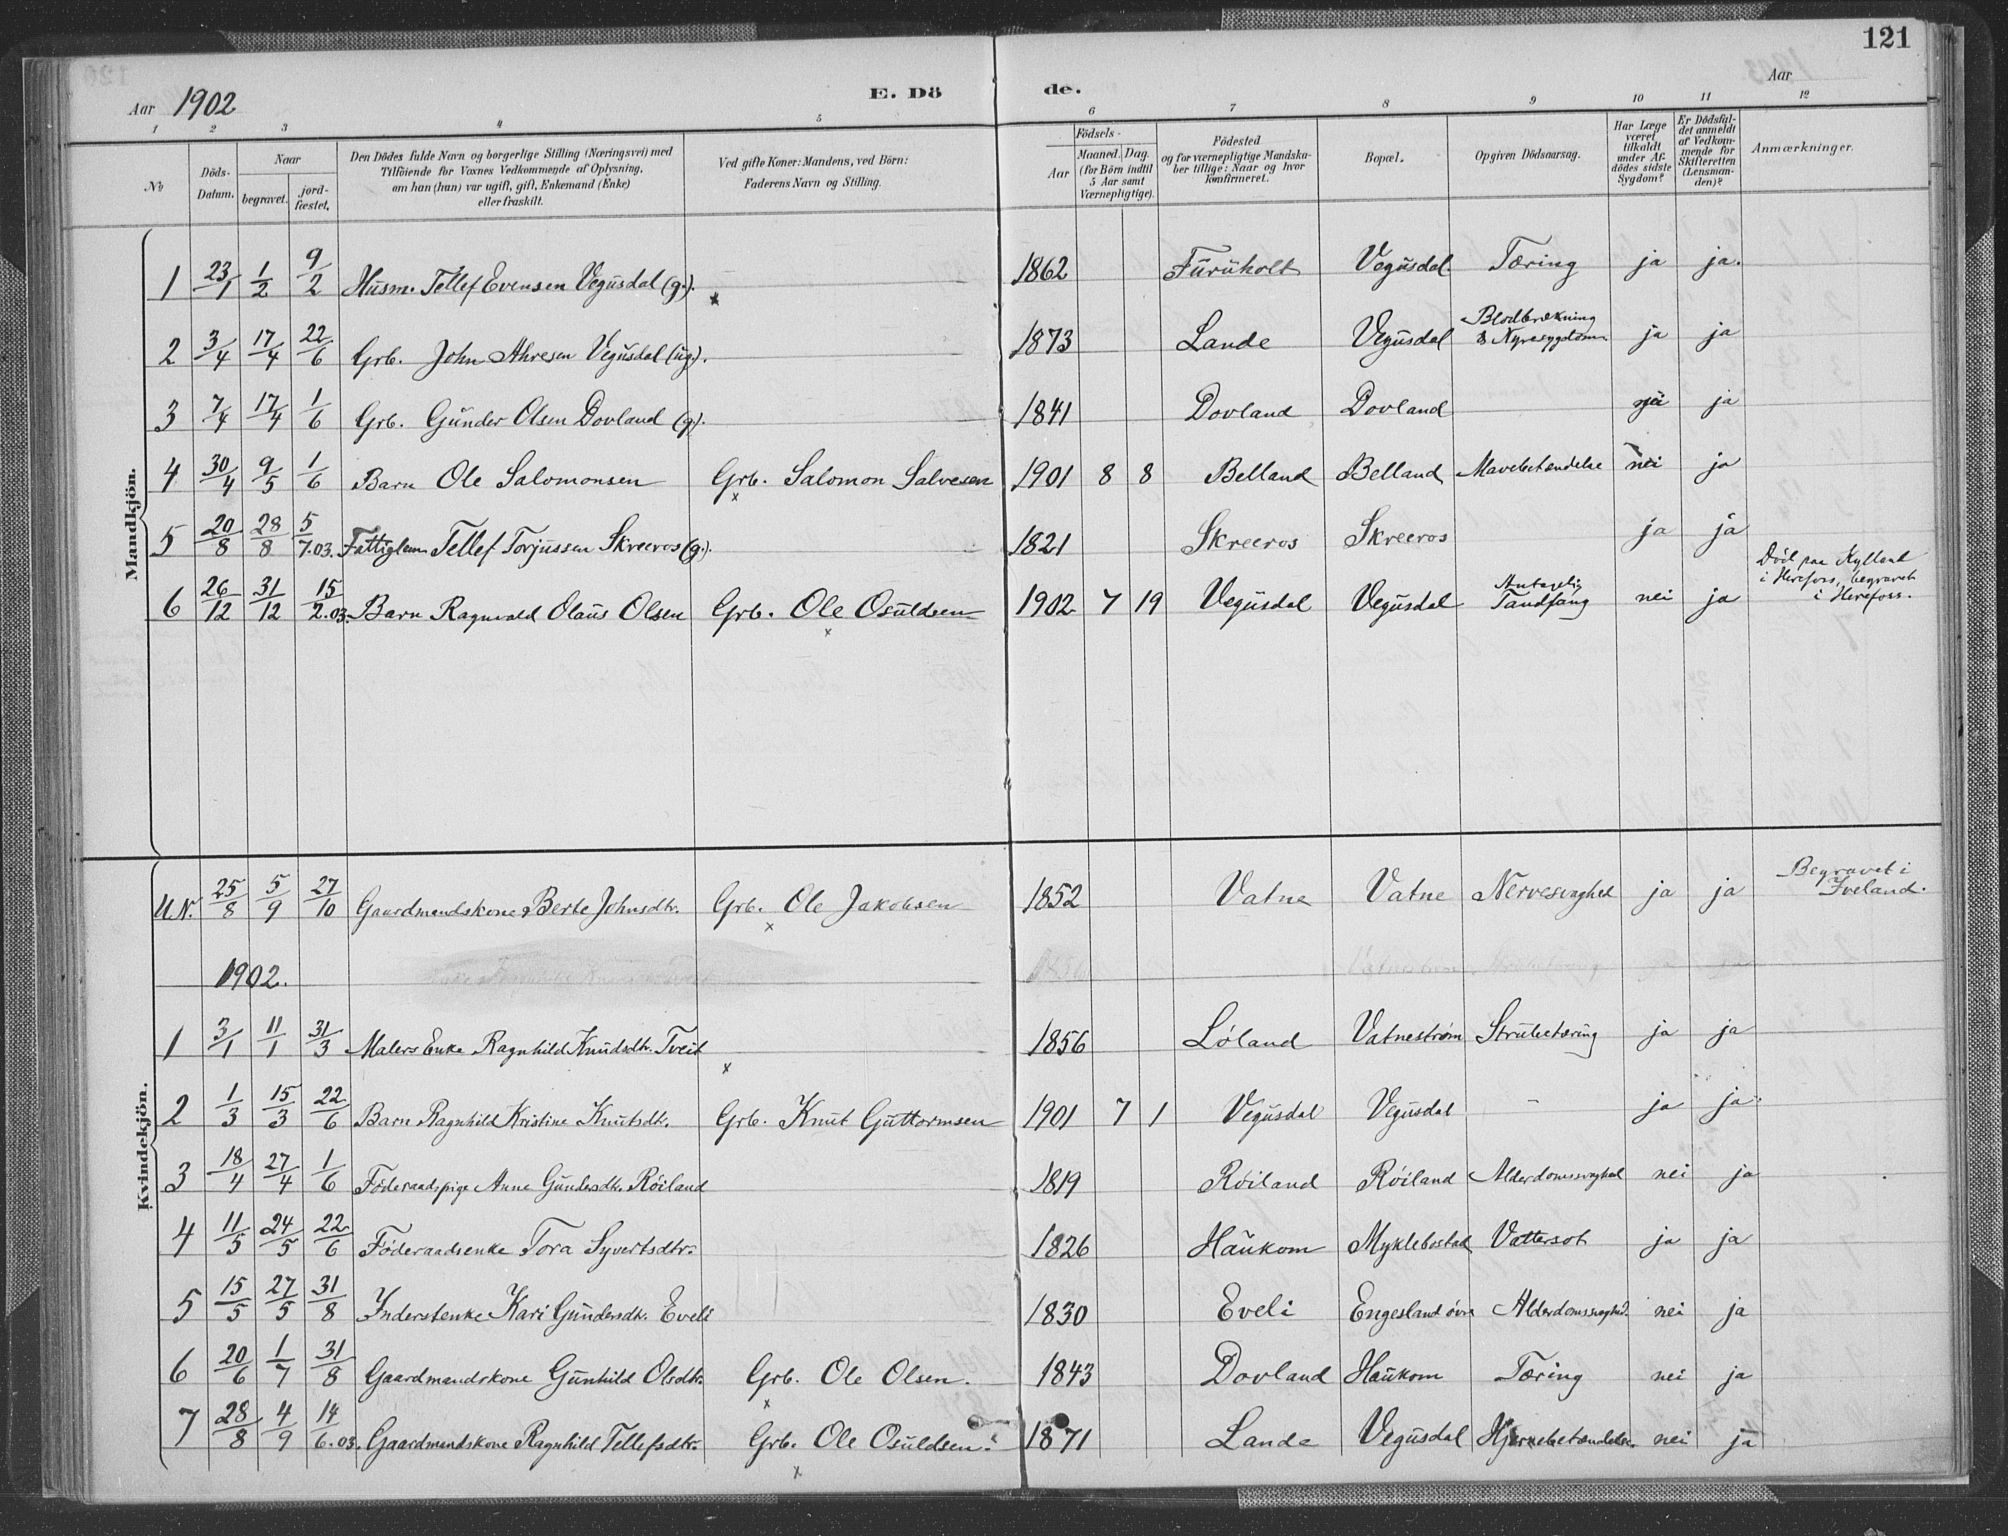 121
Aar 1902 E. Dö de. Aar
1 2 3 4 5 6 7 8 9 10 11 12
No
Döds-Datum.
Naar
begravet.
jord-fæstet.
Den Dödes fulde Navn og borgerlige Stilling (Næringsvei) med
Tilföiende for Voxnes Vedkommende af Oplysning,
om han (hun) var ugift, gift, Enkemand (Enke)
eller fraskilt.
Ved gifte Koner: Mandens, ved Börn:
Faderens Navn og Stilling.
Födsels-
Aar
Maaned. Dag.
(for Börn indtil
5 Aar samt
Værnepligtige).
Födested
og for værnepligtige Mandska-
ber tillige: Naar og hvor
konfirmeret.
Bopæl.
Opgiven Dödsaarsag.
Har Læge
været
tilkaldt
under Af-
dödes sidste
Sygdom?
Er Dödsfal-
det anmeldt
af Vedkom-
mende for
Skifteretten
(Lensman-
den)?
Anmærkninger.
Mandkjön.
1 23/1 1/2 9/2 Husm. Tellef Evensen Vegusdal (g.). 1862 Furuholt Vegusdal Tæring ja ja.
2 3/4 17/4 22/6 Grb. John Ahresen Vegusdal (ug). 1873 Lande Vegusdal Blodbrækning & Nyresygdom ja ja
3 7/4 17/4 1/6 Grb. Gunder Olsen Dovland (g). 1841 Dovland Dovland nei ja
4 30/4 9/5 1/6 Barn Ole Salomonsen Grb. Salomon Salvesen 1901 8 8 Belland Belland Mavebetændelse nei ja
5 20/8 28/8 5/7.03. Fattiglem Tellef Torjussen Skreeros (g.). 1821 Skreeros Skreeros ja ja
6 26/12 31/12 15/2.03. Barn Ragnvald Olaus Olsen Grb. Ole Osuldsen 1902 7 19 Vegusdal Vegusdal Antagelig Tandfang nei ja Död paa Kylland
i Herefoss, begravet
i Herefoss.
Kvindekjön.
U.N. 25/8 5/9 27/10 Gaardmandskone Berte Johnsdtr. Grb. Ole Jakobsen 1852 Vatne Vatne Nervesvaghed ja ja Begravet i
Iveland.
1902.
1 3/1 11/1 31/3 Malers Enke Ragnhild Knudsdtr. Tveit 1856 Löland Vatneström Strubetæring ja ja
2 1/3 15/3 22/6 Barn Ragnhild Kristine Knutsdtr. Grb. Knut Guttormsen 1901 7 1 Vegusdal Vegusdal - ja ja.
3 18/4 27/4 1/6 Föderaadspige Anne Gundersdtr. Röiland 1819 Röiland Röiland Alderdomssvaghed nei ja
4 11/5 24/5 22/6 Föderaadsenke Tora Syvertsdtr. 1826 Haukom Myklebostad Vattersot ja ja
5 15/5 27/5 31/8 Inderstenke Kari Gundersdtr. Eveli 1830 Eveli Engesland övre Alderdomssvaghd. nei ja
6 20/6 1/7 31/8 Gaardmandskone Gunhild Olsdtr. Grb. Ole Olsen. 1843 Dovland Haukom Tæring nei ja
7 28/8 4/9 14/6.03. Gaardmandskone Ragnhild Tellefsdtr. Grb. Ole Osuldsen. 1871 Lande Vegusdal Hjernebetændelse. nei ja